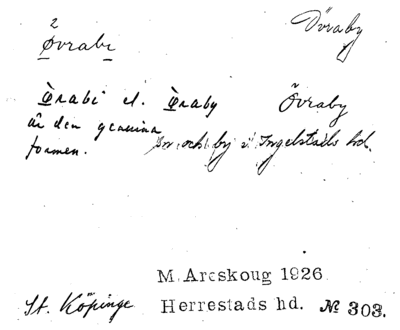 2
Øvrabı Övraby
Òrabi el. Òraby Övraby
är den genuina
formen. sn och by i Ingelstads hd.
M. Areskoug 1926
St. Köpinge Herrestads hd. № 303.